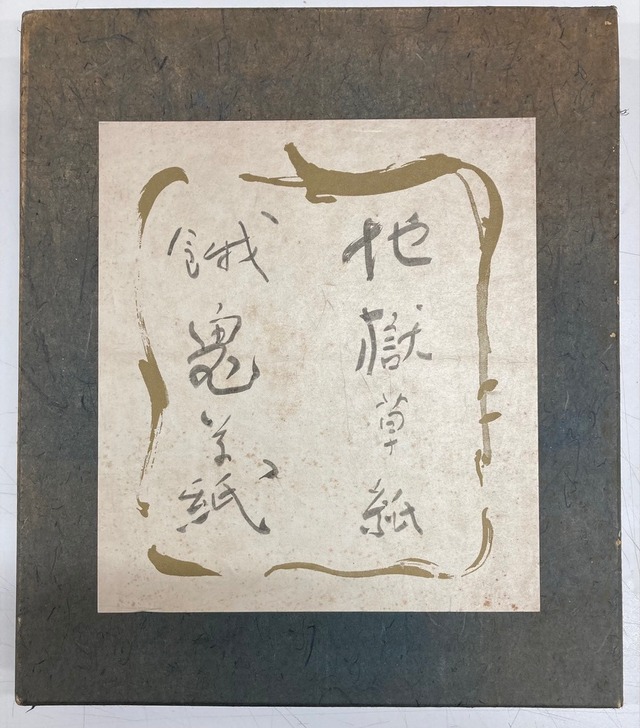 地獄草紙
餓鬼草紙